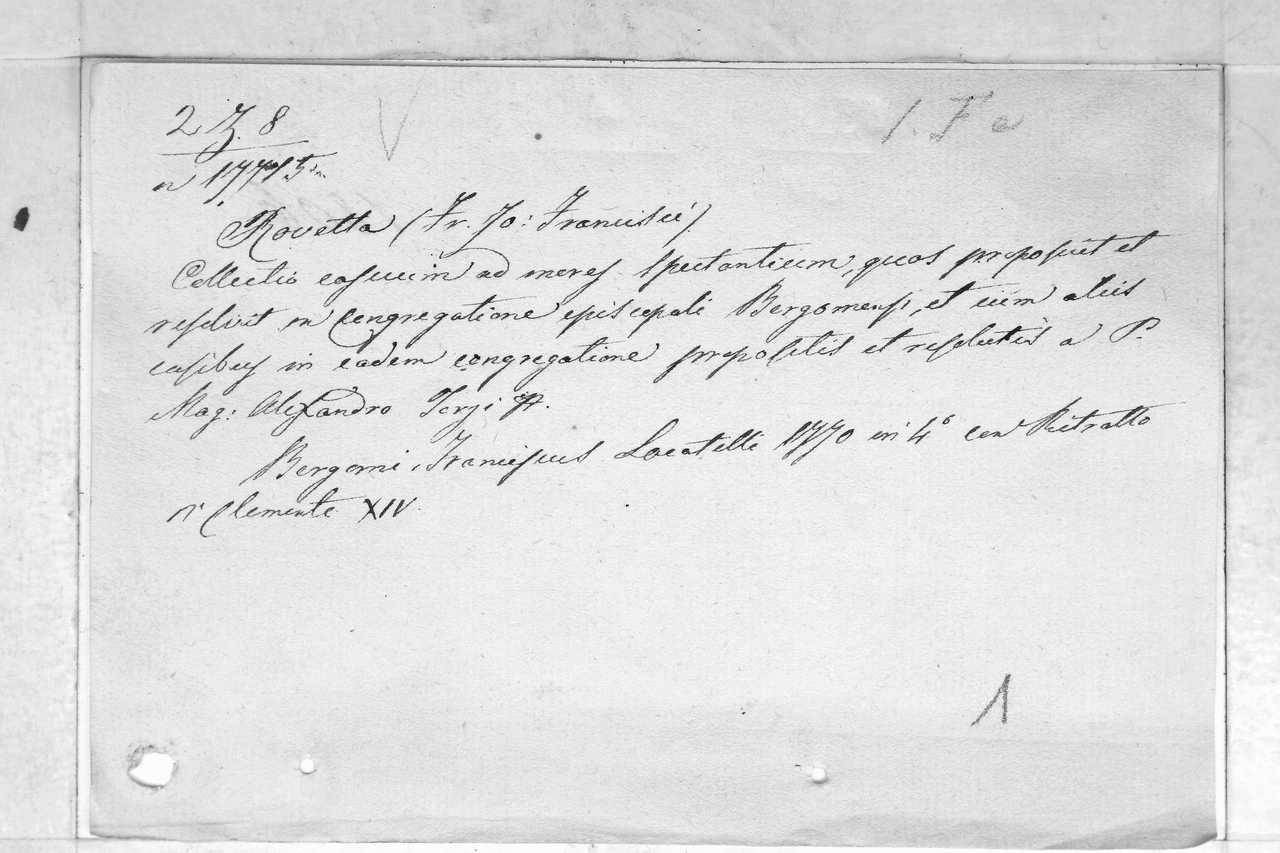 2 17. 8
1. F a
Rovetta (Fr. Jo: Francisci).
Collectio casuum ad mores spectantium, quos proposuit et
resolvit in congregatione episcopali Bergomensi, et cum aliis
casibus in eadem congregatione propositis et resolutis a P.
Mag: Alexandro Terzi
Bergomi, Franciscus Locatelli 1770 in 4° con Ritratto
Clemente XIV
1